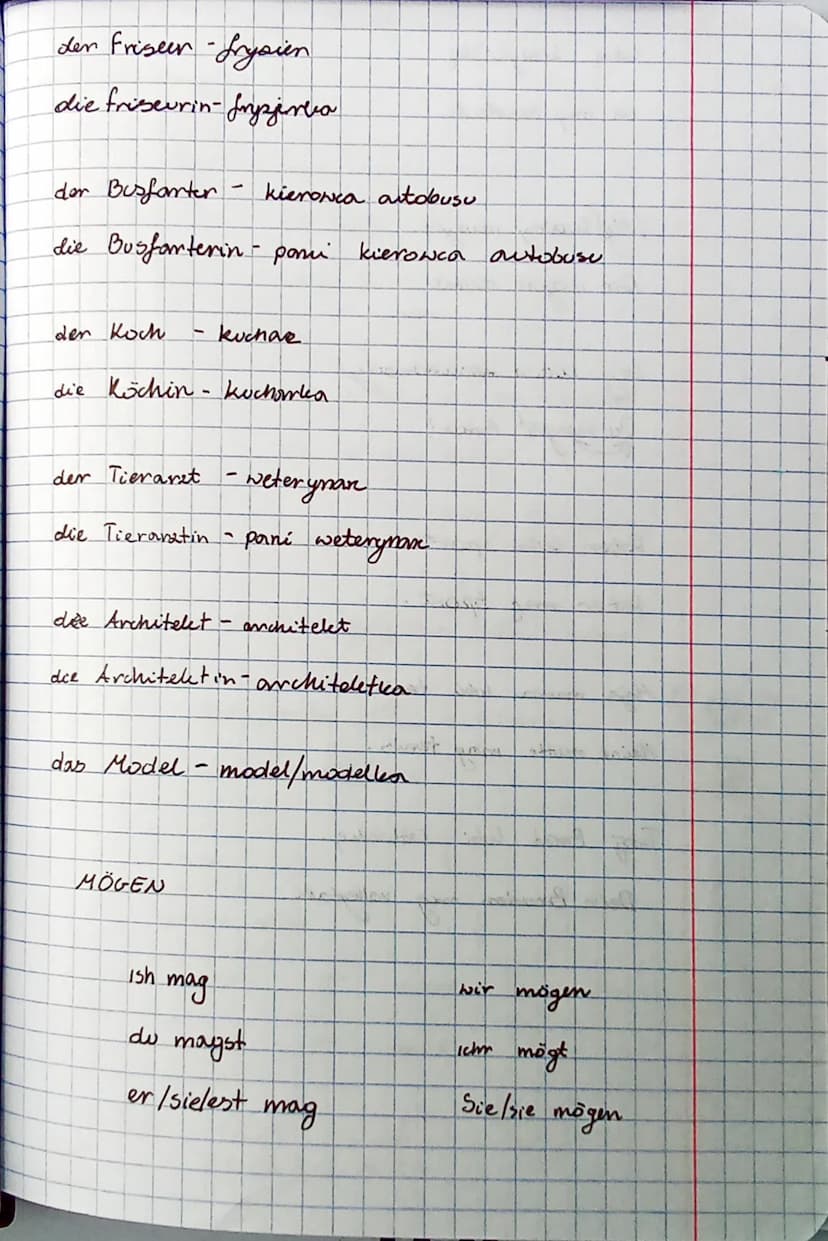 der Friseur - fryzjer
die friseurin - fryzjerka
der Busfarter - kierowca autobusu
die Busfarterin - pani kierowca autobusu
der Koch - kucharz
die Köchin - kucharka
der Tierarzt - weterynarz
die Tierarztin - pani weterynarz
die Architekt - architekt
die Architektin - architektka
das Model - model/modelka
MÖGEN
ish mag wir mögen
du magst ichr mögt
er/sie/est mag Sie/sie mögen